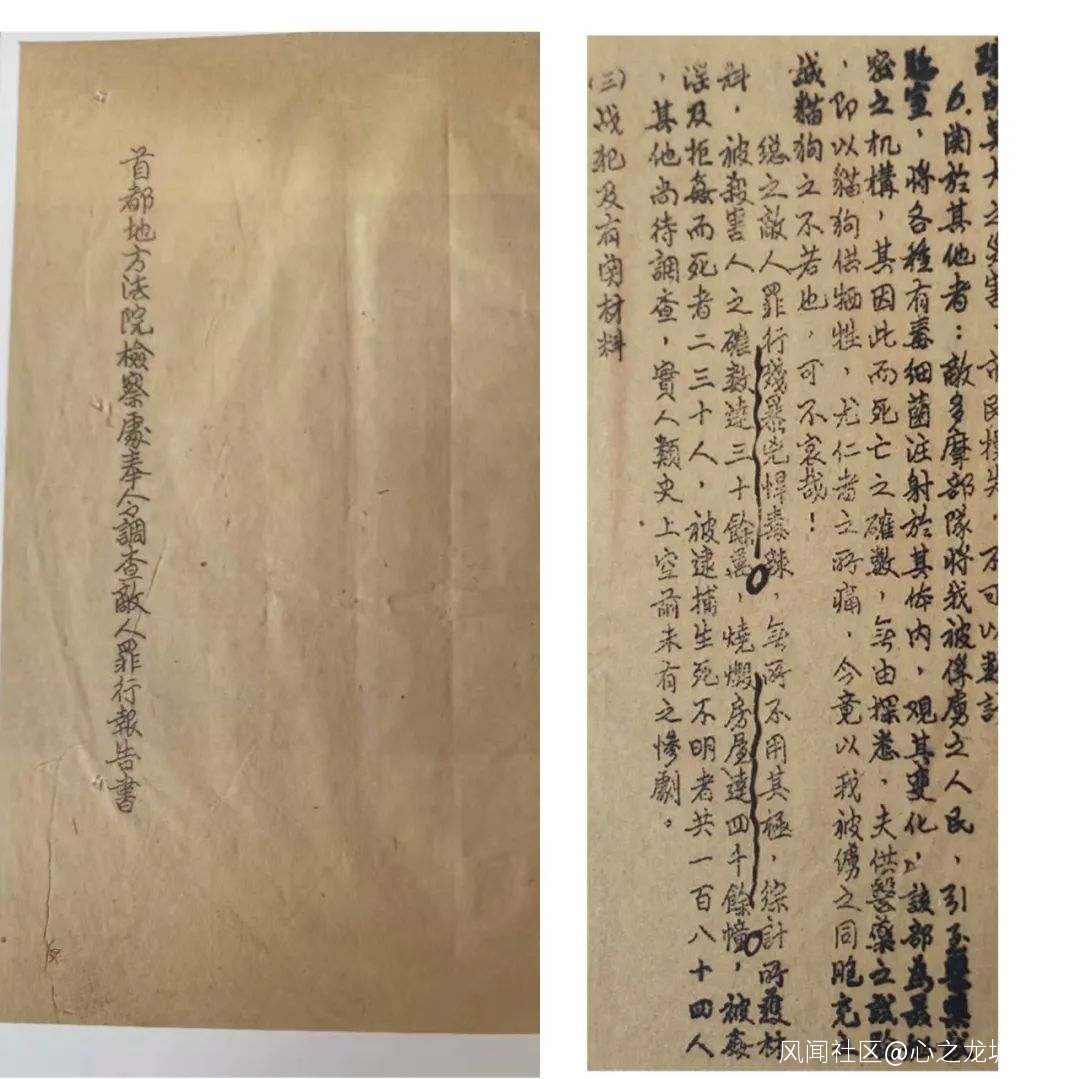 首都地方法院檢察處奉令調查敵人罪行報告書
之災害，市民損失，不可以數計
6.関於其他者：敵多摩部隊將我被俘虜之人民，引至醫藥試
驗室，將各種有毒細菌注射於其体内，观其变化，該部為最秘
密之机構，其因此而死亡之確数，無由探悉，夫供醫藥之試驗
，即以貓狗供牺牲，尤仁者之所痛，今竟以我被虜之同胞充
誠貓狗之不若也，可不哀哉！
總之敵人罪行殘暴兇悍毒辣，無所不用其極，綜計所獲材
料，被殺害人之確数達三十餘萬，燒燬房屋達四千餘幢，被姦
淫及拒姦而死者二三十人，被逮捕生死不明者共一百八十四人
，其他尚待調查，實人類史上空前未有之慘劇。
(三)战犯及有関材料
风闻社区@心之龙城